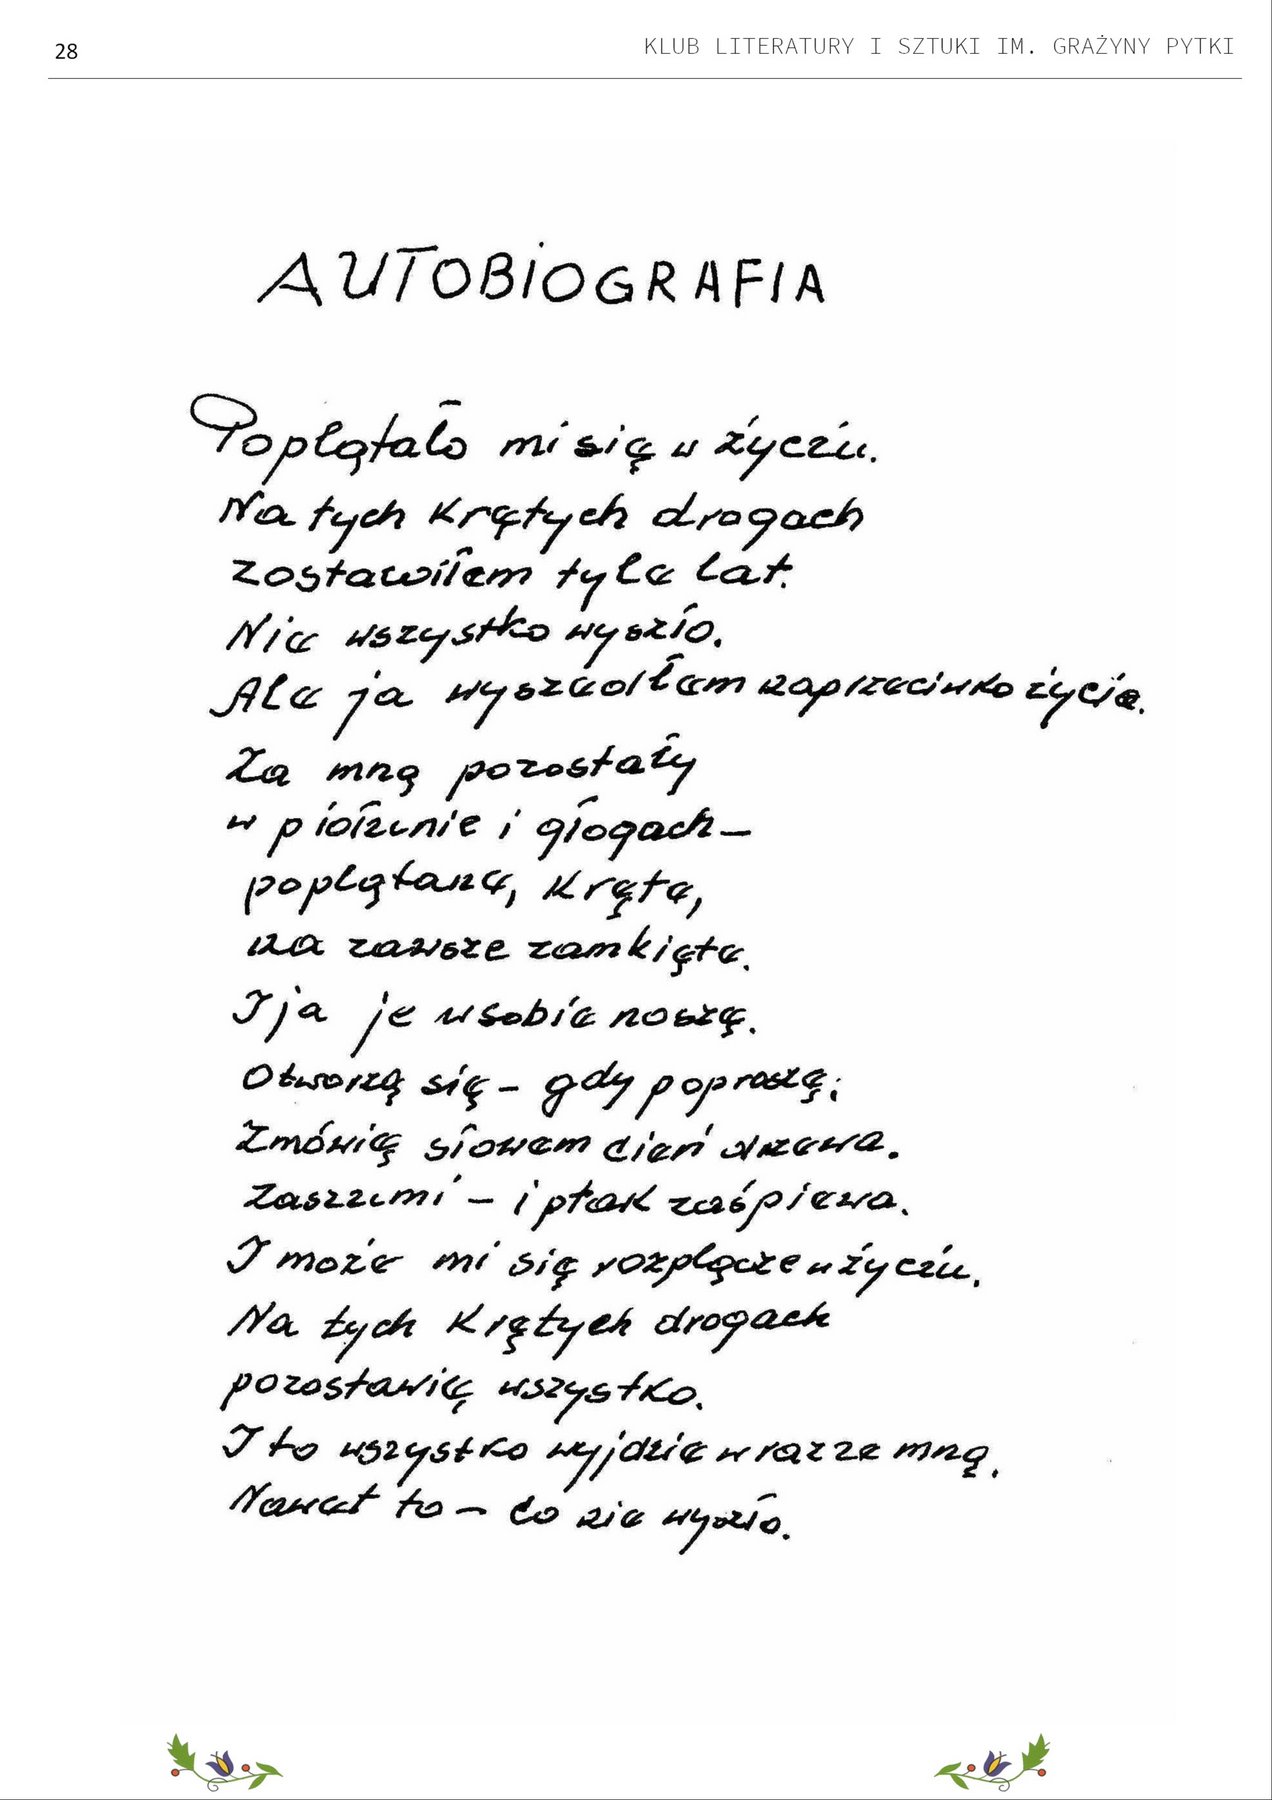 28
KLUB LITERATURY I SZTUKI IM. GRAŻYNY PYTKI
AUTOBIOGRAFIA
Poplątało mi się w życiu.
Na tych krętych drogach
zostawiłem tyle lat.
Nie wszystko wyszło.
Ale ja wyszedłem naprzeciwko życia.
Za mną pozostały
w piołunie i głogach –
poplątane, kręte,
na zawsze zamkięte.
I ja je w sobie noszę.
Otworzą się – gdy poproszę;
Zmówię słowem cień drzewa.
Zaszumi – i ptak zaśpiewa.
I może mi się rozplącze w życiu.
Na tych krętych drogach
pozostawię wszystko.
I to wszystko wyjdzie wraz ze mną.
Nawet to – co nie wyszło.